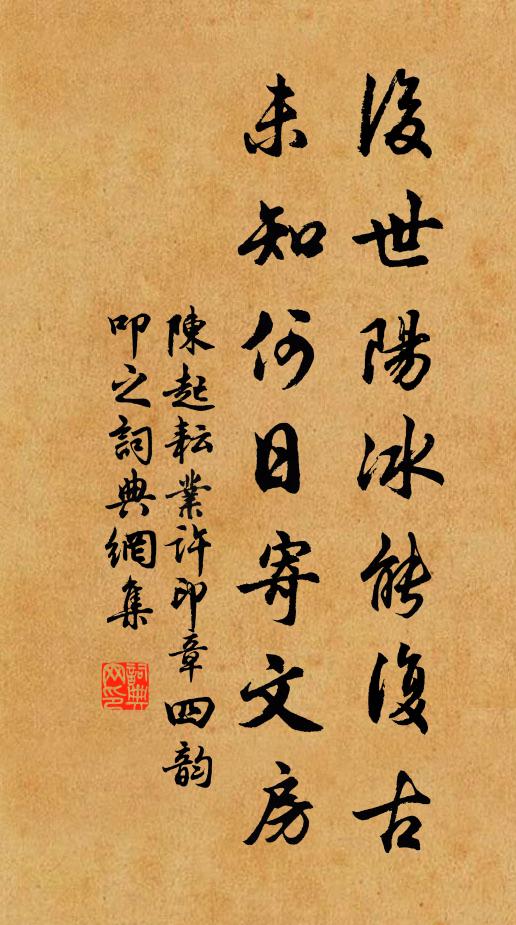 後世陽冰能復古
未知何日寄文房
陳起耘業許印章四韵
叩之詞典網集
詞典网印